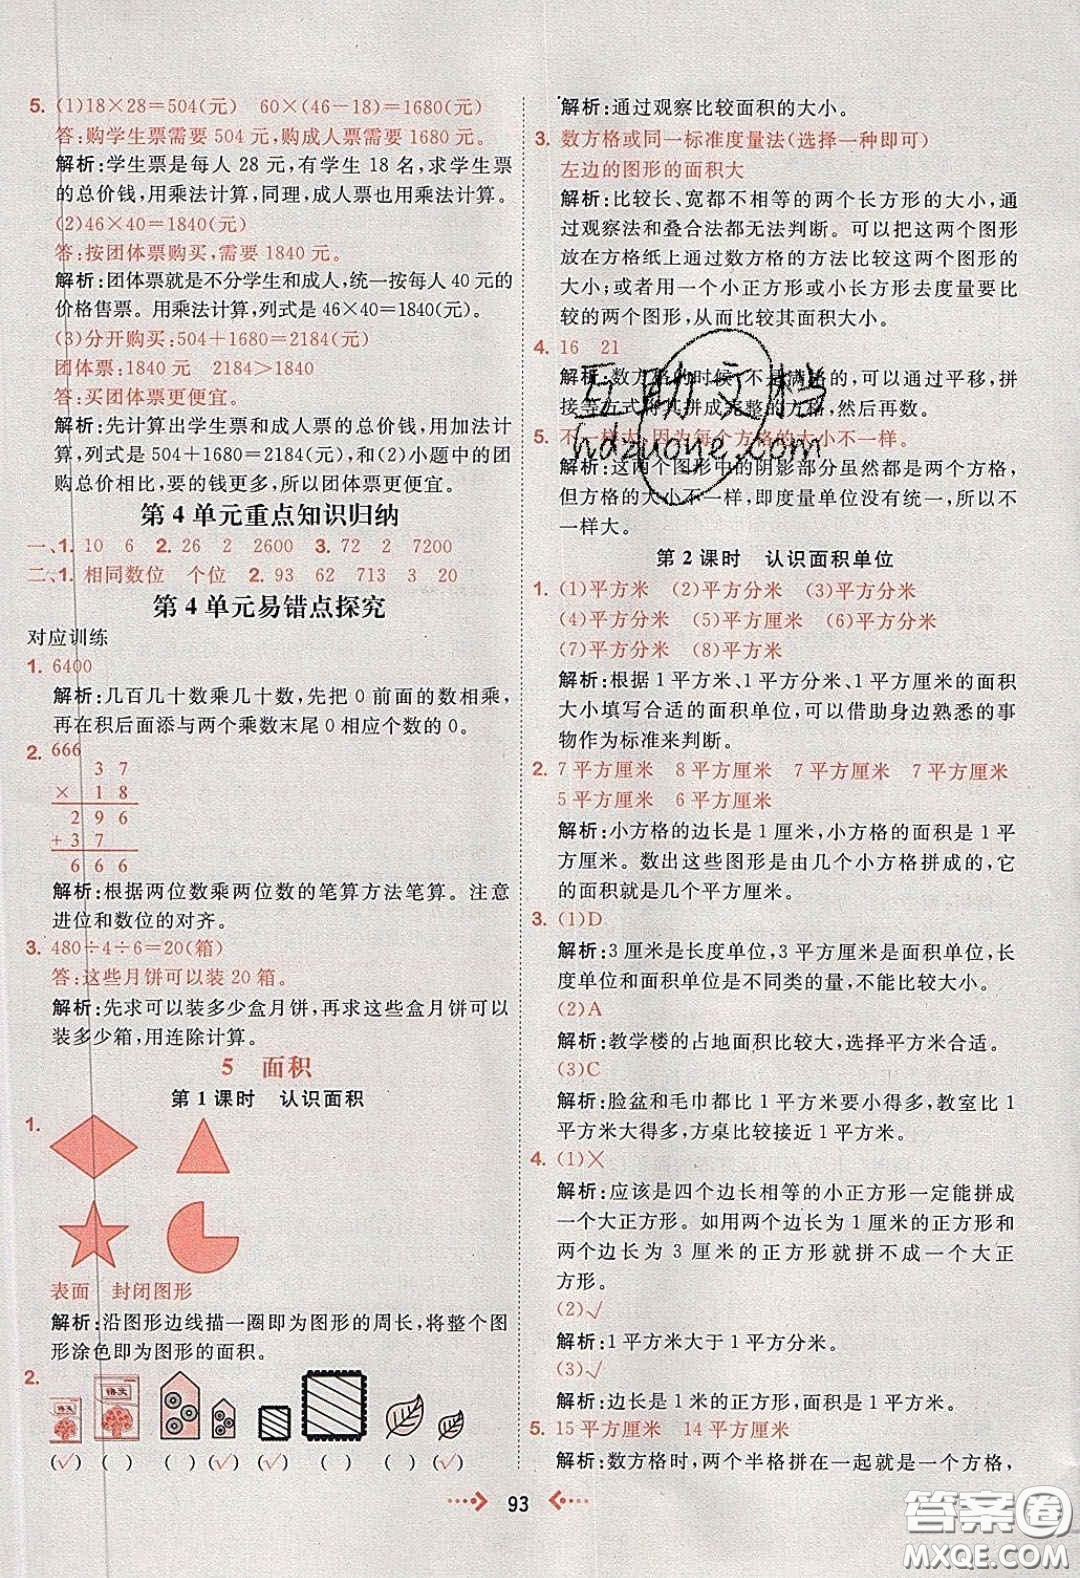 5. (1)18×28=504(元) 60×(46-18)=1680(元)
答:购学生票需要 504 元,购成人票需要 1680 元。
解析:学生票是每人 28 元,有学生 18 名,求学生票
的总价钱,用乘法计算,同理,成人票也用乘法计算。
(2)46×40=1840(元)
答:按团体票购买,需要 1840 元。
解析:团体票就是不分学生和成人,统一按每人 40 元的
价格售票。用乘法计算,列式是 46×40=1840(元)。
(3)分开购买:504+1680=2184(元)
团体票:1840 元 2184>1840
答:买团体票更便宜。
解析:先计算出学生票和成人票的总价钱,用加法计
算,列式是 504+1680=2184(元),和(2)小题中的团
购总价相比,要的钱更多,所以团体票更便宜。
第 4 单元重点知识归纳
一、1. 10 6 2. 26 2 2600 3. 72 2 7200
二、1. 相同数位 个位 2. 93 62 713 3 20
第 4 单元易错点探究
对应训练
1. 6400
解析:几百几十数乘几十数,先把 0 前面的数相乘,
再在积后面添与两个乘数末尾 0 相应个数的 0。
2. 666
3 7
× 1 8
2 9 6
+ 3 7
6 6 6
解析:根据两位数乘两位数的笔算方法笔算。注意
进位和数位的对齐。
3. 480÷4÷6=20(箱)
答:这些月饼可以装 20 箱。
解析:先求可以装多少盒月饼,再求这些盒月饼可以
装多少箱,用连除计算。
5 面积
第 1 课时 认识面积
1.
表面 封闭图形
解析:沿图形边线描一圈即为图形的周长,将整个图
形涂色即为图形的面积。
2.
语文
(√) ( ) ( ) (√) (√) ( ) ( ) (√)
解析:通过观察比较面积的大小。
3. 数方格或同一标准度量法(选择一种即可)
左边的图形的面积大
解析:比较长、宽都不相等的两个长方形的大小,通
过观察法和叠合法都无法判断。可以把这两个图形
放在方格纸上通过数方格的方法比较这两个图形的
大小;或者用一个小正方形或小长方形去度量要比
较的两个图形,从而比较其面积大小。
4. 16 21
解析:数方格的时候,不是满格的,可以通过平移,拼
接等方式将其拼成完整的方格,然后再数。
5. 不一样大,因为每个方格的大小不一样。
解析:这两个图形中的阴影部分虽然都是两个方格,
但方格的大小不一样,即度量单位没有统一,所以不
一样大。
互助文档
hdzuoye.com
第 2 课时 认识面积单位
1. (1)平方米 (2)平方分米 (3)平方分米
(4)平方分米 (5)平方厘米 (6)平方分米
(7)平方分米 (8)平方米
解析:根据 1 平方米、1 平方分米、1 平方厘米的面积
大小填写合适的面积单位,可以借助身边熟悉的事
物作为标准来判断。
2. 7 平方厘米 8 平方厘米 7 平方厘米 7 平方厘米
5 平方厘米 6 平方厘米
解析:小方格的边长是 1 厘米,小方格的面积是 1 平
方厘米。数出这些图形是由几个小方格拼成的,它
的面积就是几个平方厘米。
3. (1)D
解析:3 厘米是长度单位,3 平方厘米是面积单位,长
度单位和面积单位是不同类的量,不能比较大小。
(2)A
解析:教学楼的占地面积比较大,选择平方米合适。
(3)C
解析:脸盆和毛巾都比 1 平方米要小得多,教室比 1
平方米大得多,方桌比较接近 1 平方米。
4. (1)×
解析:应该是四个边长相等的小正方形一定能拼成
一个大正方形。如用两个边长为 1 厘米的正方形和
两个边长为 3 厘米的正方形就拼不成一个大正
方形。
(2)√
解析:1 平方米大于 1 平方分米。
(3)√
解析:边长是 1 米的正方形,面积是 1 平方米。
5. 15 平方厘米 14 平方厘米
解析:数方格时,两个半格拼在一起为一个方格,
93
答案圈
MXQE.COM